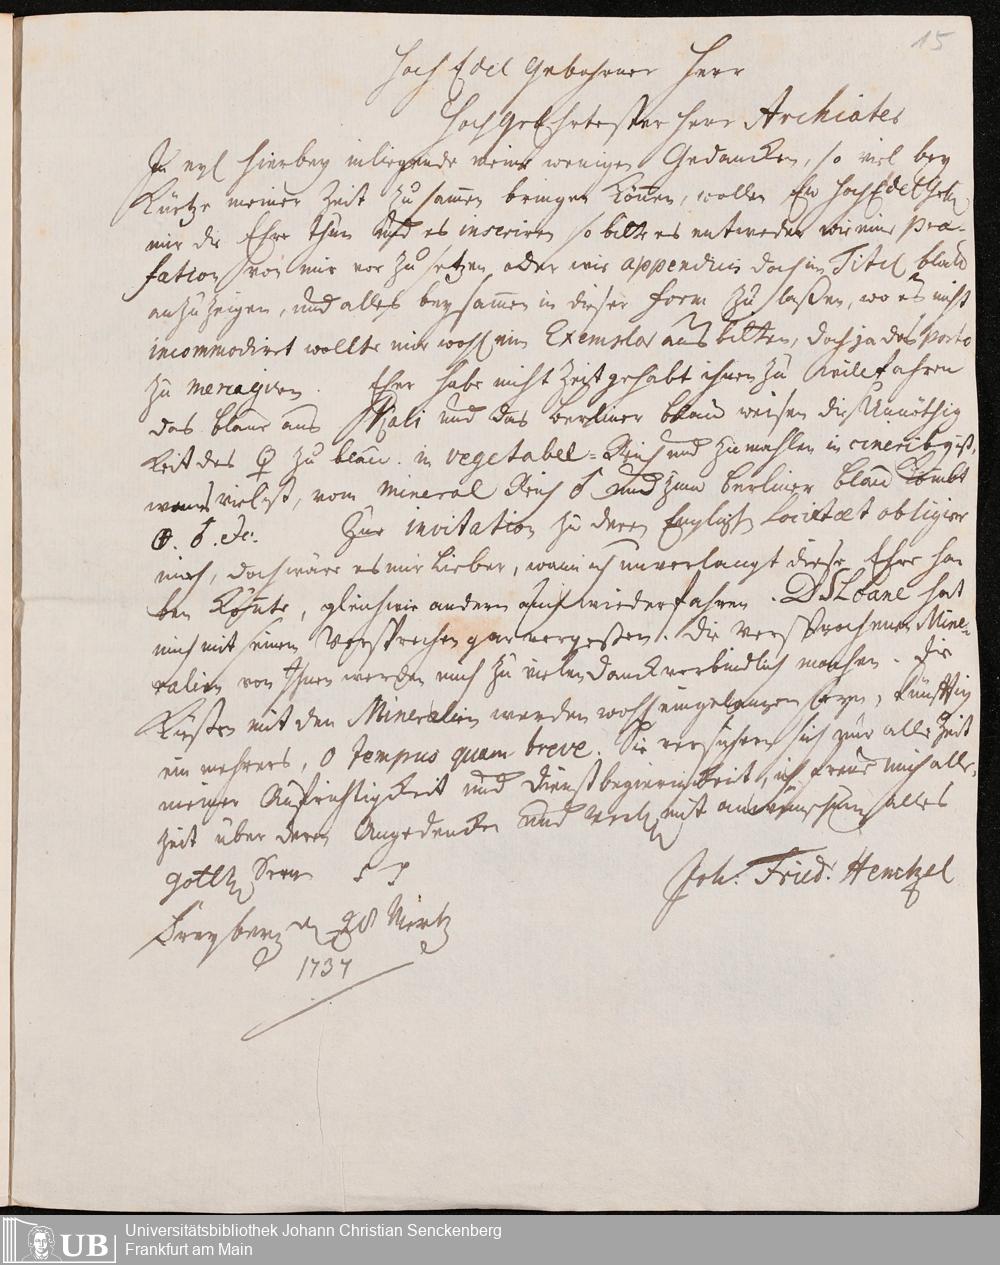 15
Hoch Edel Gebohrner Herr
Hochgeehrtester Herr Archiater
In eyl hierbey inliegende meine wenigen Gedancken, so viel bey
Kürtze meiner Zeit zusamen bringen können, wollen Ew HochEdelGeb
mir die Ehre thun und es inseriren so bitte es entweder wie eine Præ-
fation von mir vor zu setzen oder wie appendicis doch im Titel blad
anzuzeigen, und alles beysamen in dieser form zu laßen, wo es nicht
incommodirt wollte mir wohl ein Exemplar ausbitten, doch ja das porto
zu menagiren. Eher habe nicht Zeit gehabt ihnen zu
das blaue aus Kali und das berliner blau weisen die Unnöthig
keit des ♀ zu blau. in vegetabel-Reich und zumahlen in cineribus ist,
viel ist, vom mineral Reich und zum berliner blau kombt
Zur invitation zu deren Englisch Societæt obligire
mich, doch wäre es mir lieber, wann ich unverlangt diese Ehre ha
ben könnte, gleichwie andern auch wiederfahren. D Sloane hat
mich mit seinem Versprechen gar vergeßen. Die versprochenen Mine-
ralien von Ihnen werden mich zu vielen Danck verbindlich machen. Die
Kisten mit den Mineralien werden wohl eingelangen seyn, künfftig
ein mehrers, O tempus quam breve. Sie versichern sich zur alle Zeit
meiner Aufrichtigkeit und dienstbegierigkeit, ich freue mich alle-
zeit über deren Angedencken und mit anwünschung alles
göttl Seegen
Joh. Fried. Henckel
Freyberg 28 Mertz
1737
Universitätsbibliothek Johann Christian Senckenberg
Frankfurt am Main
UB